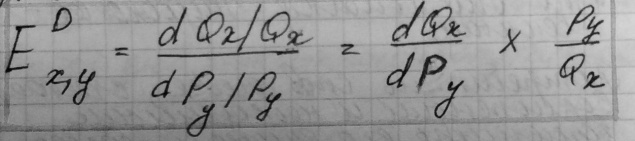 E^D_{x,y} = \frac{dQx/Qx}{dP_y/P_y} = \frac{dQx}{dP_y} × \frac{Py}{Qx}